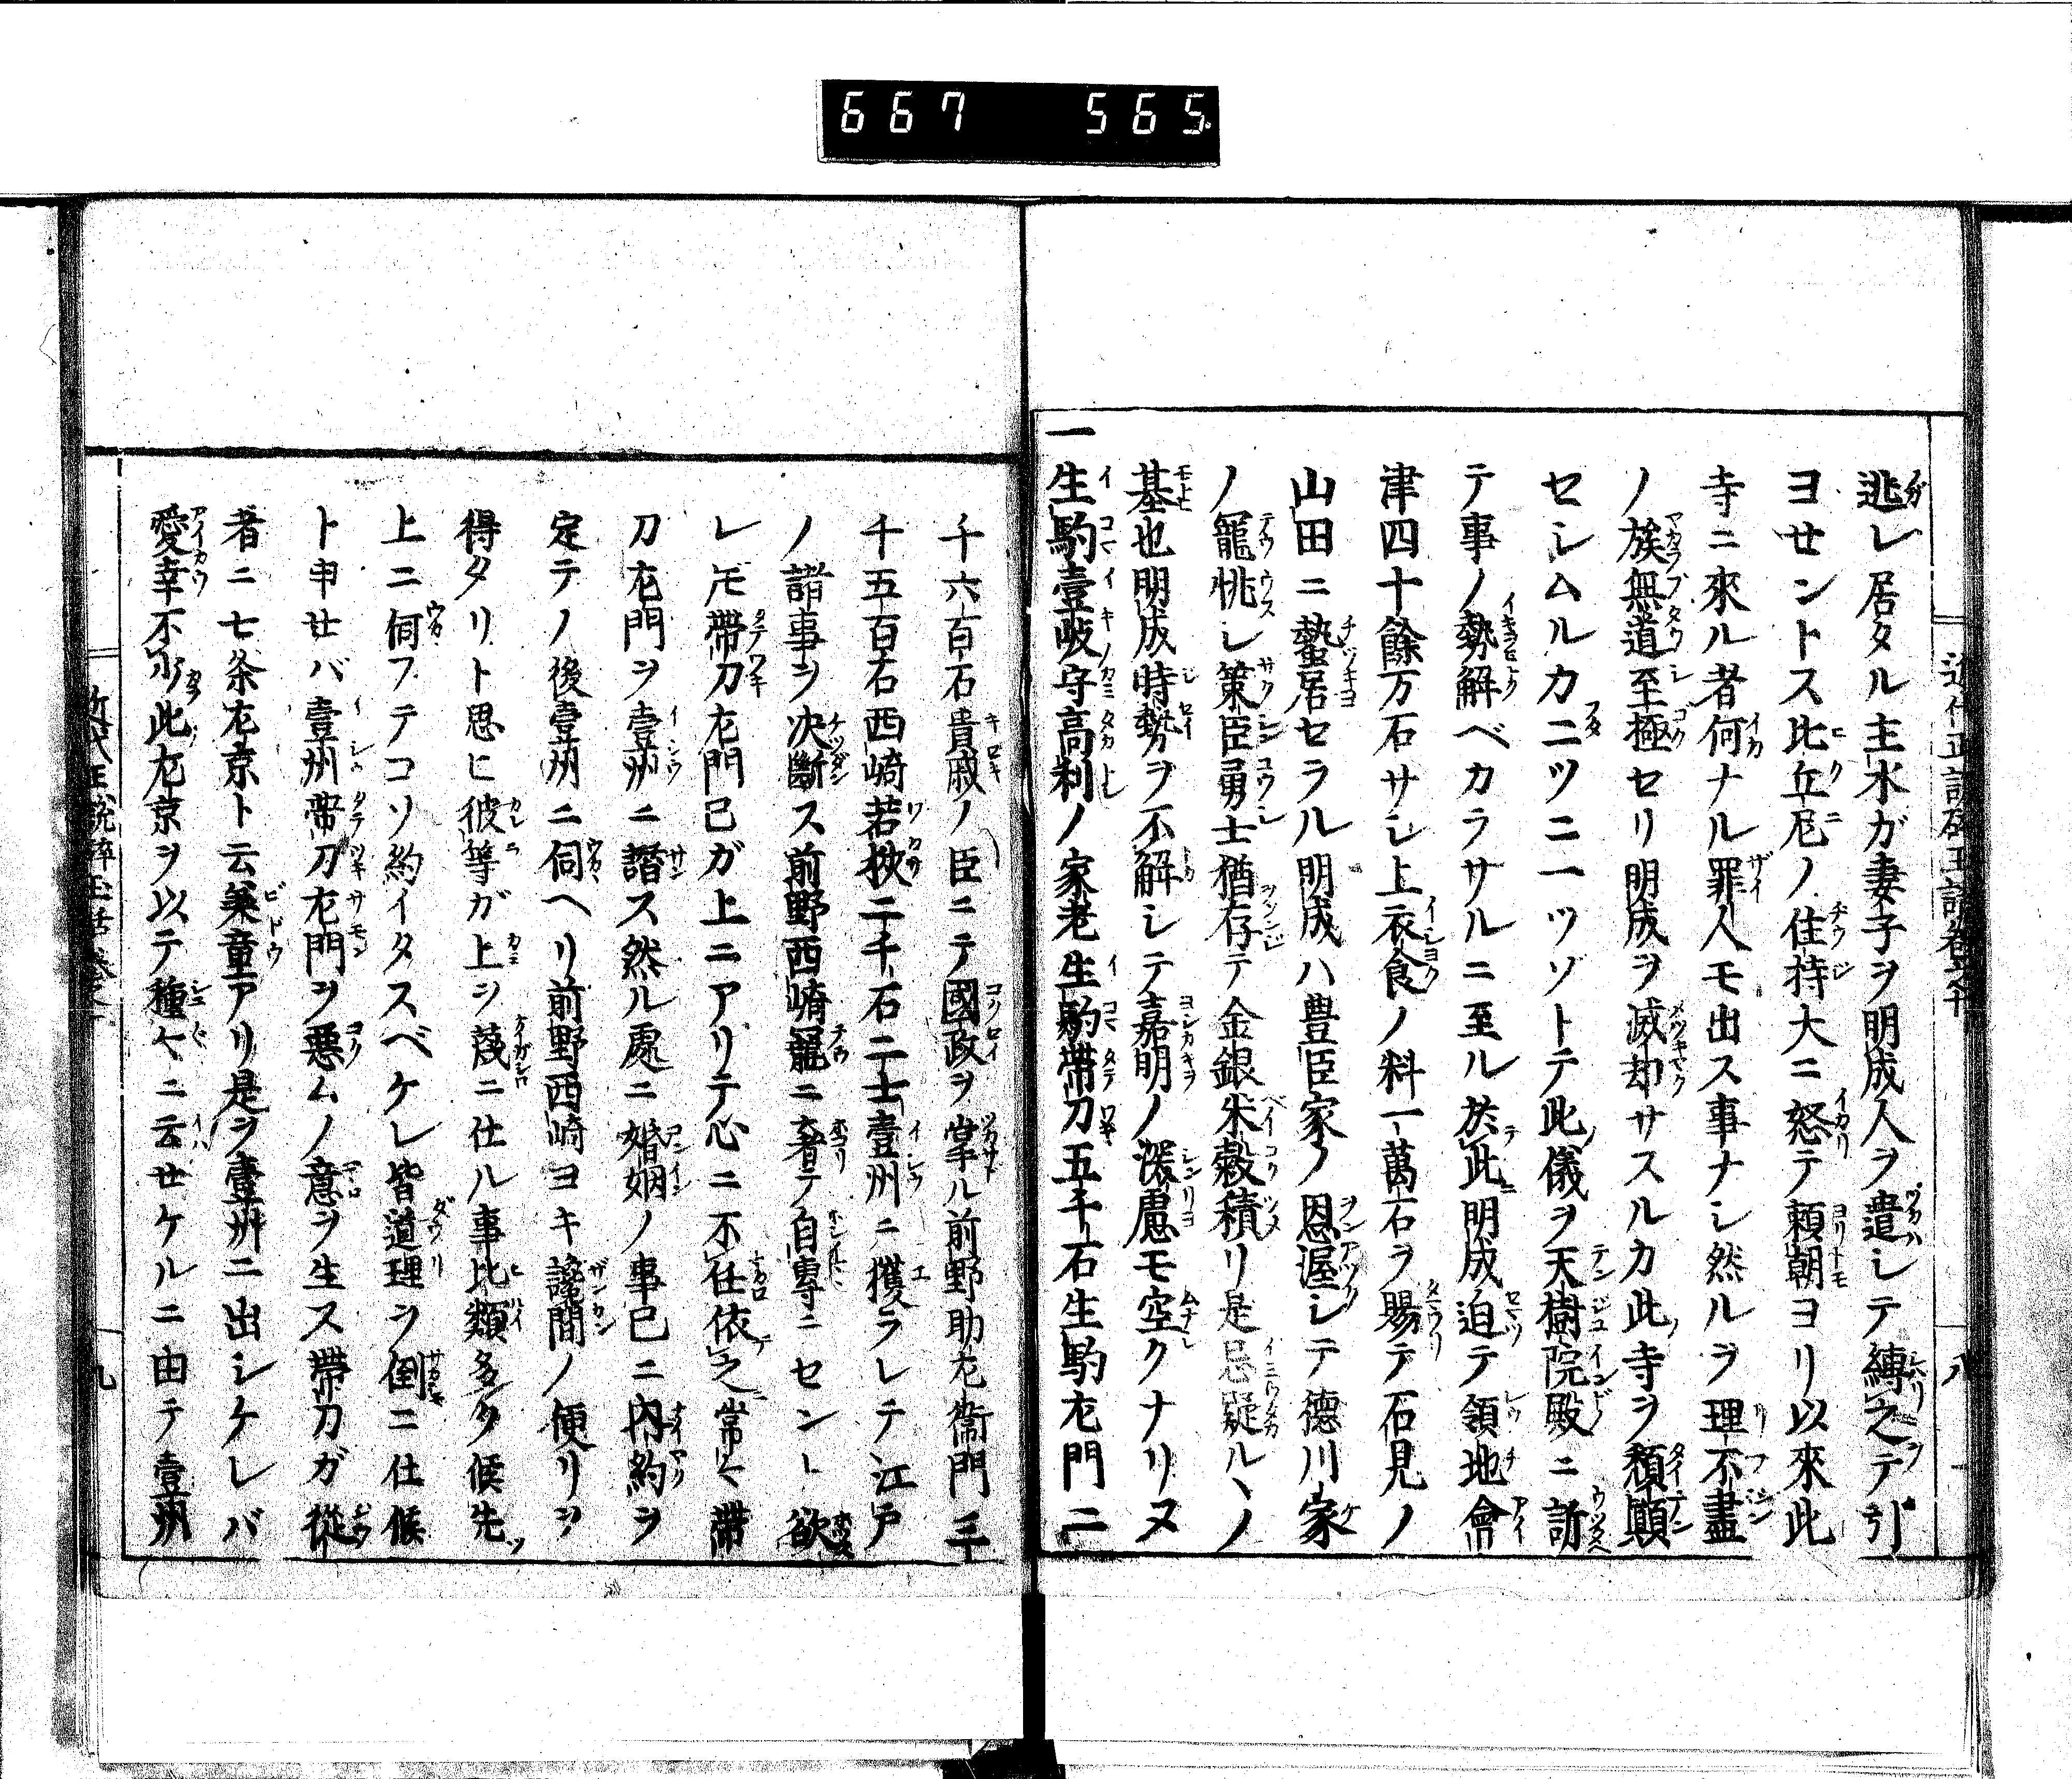 667 565
逃レ居タル主水ガ妻子ヲ明成人ヲ遣シテ縛之テ引
ヨセントス比丘尼ノ住持大ニ怒テ頼朝ヨリ以來此
寺ニ來ル者何ナル罪人モ出ス事ナシ然ルヲ理不盡
ノ族無道至極セリ明成ヲ滅却サスルカ此寺ヲ頽顛
セシムルカ二ツニ一ツゾトテ此儀ヲ天樹院殿ニ訴
テ事ノ勢解ベカラサルニ至ル於此明成迫テ領地會
津四十餘万石サシ上衣食ノ料一萬石ヲ賜テ石見ノ
山田ニ蟄居セラル明成ハ豊臣家ノ恩渥シテ德川家
ノ寵恌シ策臣勇士猶存テ金銀米穀積リ是忌疑ルヽノ
基也明成時勢ヲ不解シテ嘉明ノ深慮モ空クナリヌ
一生駒壹岐守高利ノ家老生駒帶刀五千石生駒左門二
千六百石貴戚ノ臣ニテ國政ヲ掌ル前野助左衞門三
千五百石西崎若狹二千石二士壹州ニ獲ラレテ江戸
ノ諸事ヲ决斷ス前野西崎寵ニ奢テ自專ニセント欲
レ𪜈帶刀左門己ガ上ニアリテ心ニ不任依之常々帶
刀左門ヲ壹州ニ譖ス然ル處ニ婚姻ノ事已ニ內約ヲ
定テノ後壹州ニ伺ヘリ前野西崎ヨキ讒間ノ便リヲ
得タリト思ヒ彼等ガ上ヲ蔑ニ仕ル事比類多ク候先
上ニ伺フテコソ約イタスベケレ皆道理ヲ倒ニ仕候
ト申セバ壹州帶刀左門ヲ惡ムノ意ヲ生ス帶刀ガ從
者ニ七条左京ト云美童アリ是ヲ壹州ニ出シケレバ
愛幸不少此左京ヲ以テ種々ニ云セケルニ由テ壹州
八
九